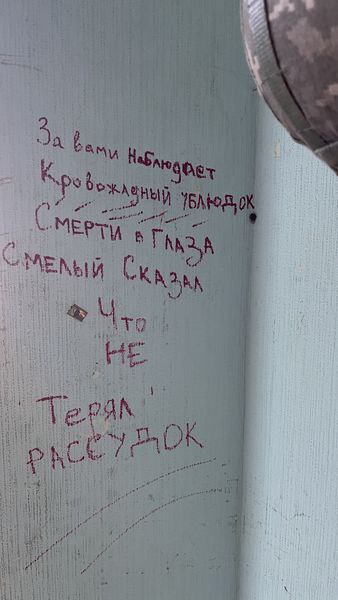 За вами наблюдает
Кровожадный ублюдок
Смерти в Глаза
Смелый Сказал
Что
НЕ
Терял
РАССУДОК